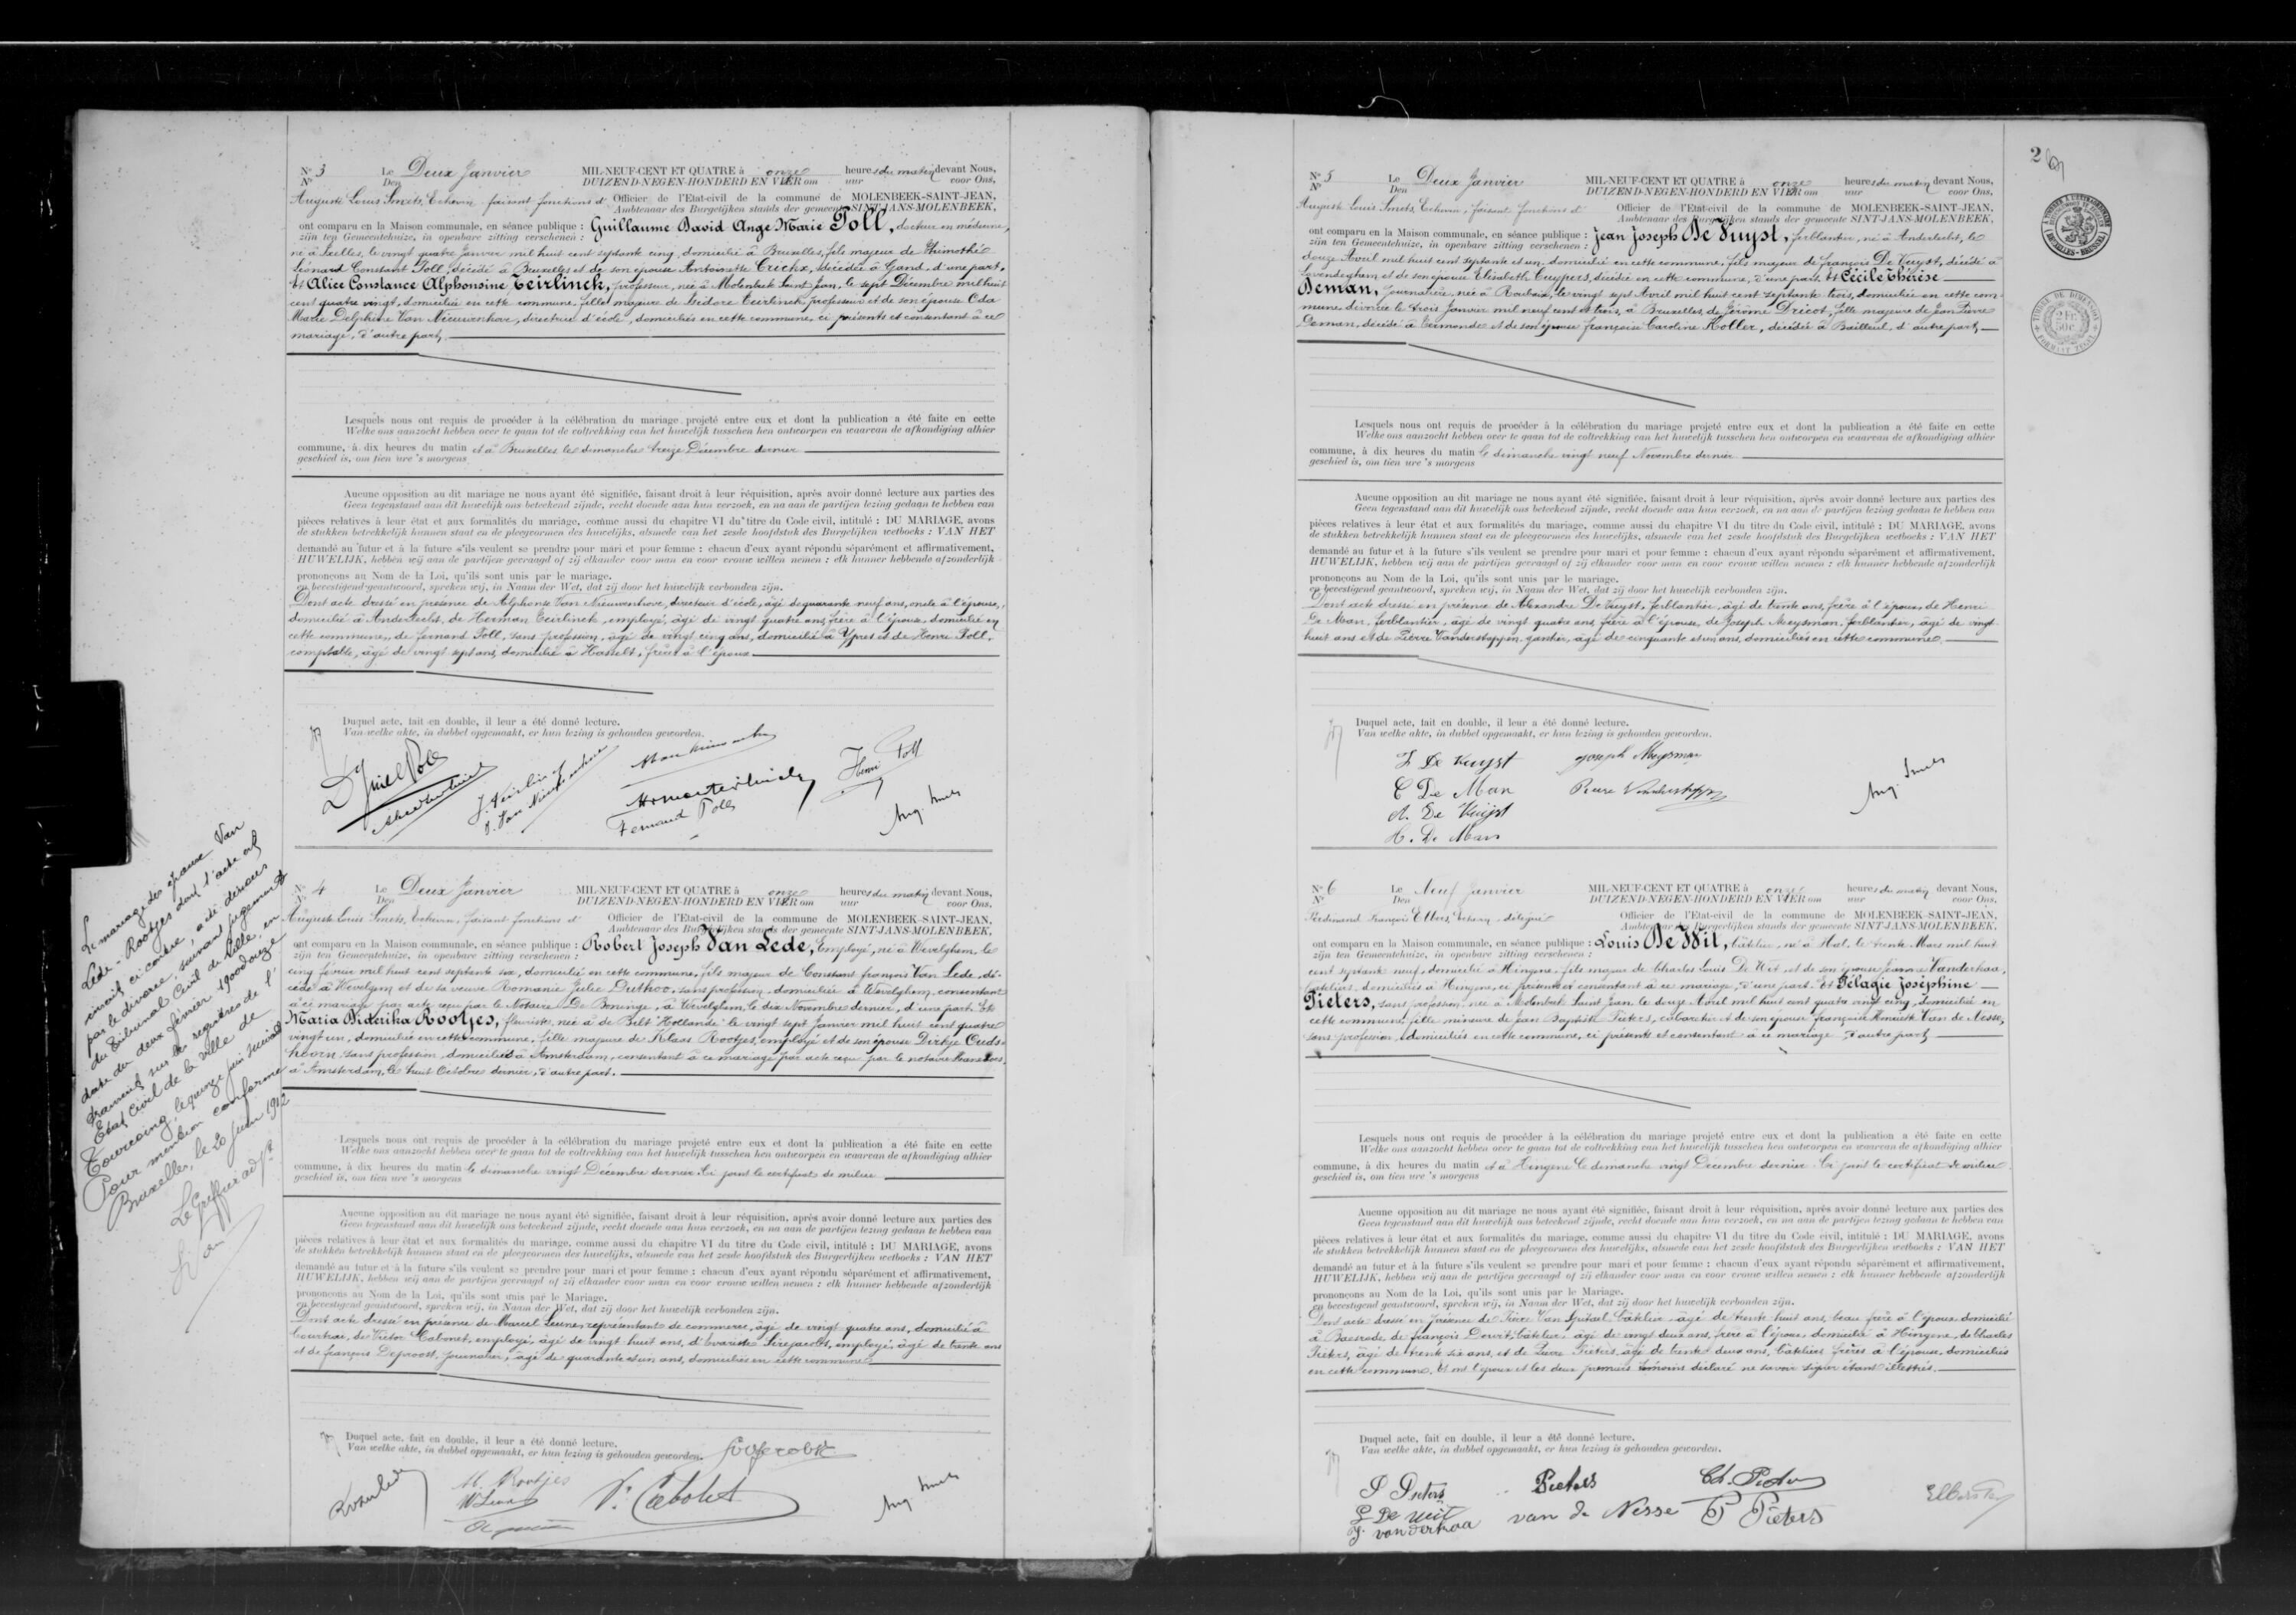 Nº 3 Le Deux Janvier MIL-NEUF-CENT ET QUATRE à onze heures du matin devant Nous,
Nr Den DUIZEND-NEGEN-HONDERD EN VIER om uur voor Ons,
Auguste Louis Smets, Echevin, faisant fonctions d' Officier de l'Etat-civil de la commune de MOLENBEEK-SAINT-JEAN,
Ambtenaar des Burgelijken stands der gemeente SINT-JANS-MOLENBEEK,
ont comparu en la Maison communale, en séance publique : Guillaume David Ange Marie Toll, docteur en médecine,
zijn ten Gemeentehuize, in openbare zitting verschenen :
né à Ixelles, le vingt quatre Janvier mil huit cent septante cinq, domicilié à Bruxelles, fils majeur de Thimothé
Léonard Constant Toll, décédé à Bruxelles et de son épouse Antoinette Crickx, décédée à Gand, d'une part.
Et Alice Constance Alphonsine Teirlinck, professeur, née à Molenbeek Saint Jean, le sept Décembre mil huit
cent quatre vingt, domiciliée en cette commune, fille majeure de Isidore Teirlinck, professeur et de son épouse Oda
Marie Delphine Van Nieuwenhove, directrice d'école, domiciliés en cette commune, ci présents et consentant à ce
mariage, d'autre part.
Lesquels nous ont requis de procéder à la célébration du mariage projeté entre eux et dont la publication a été faite en cette
Welke ons aanzocht hebben over te gaan tot de voltrekking van het huwelijk tusschen hen ontworpen en waarvan de afkondiging alhier
commune, à dix heures du matin et à Bruxelles le dimanche treize Décembre dernier
geschied is, om tien ure 's morgens
Aucune opposition au dit mariage ne nous ayant été signifiée, faisant droit à leur réquisition, après avoir donné lecture aux parties des
Geen tegenstand aan dit huwelijk ons beteekend zijnde, recht doende aan hun verzoek, en na aan de partijen lezing gedaan te hebben van
pièces relatives à leur état et aux formalités du mariage, comme aussi du chapitre VI du titre du Code civil, intitulé : DU MARIAGE, avons
de stukken betrekkelijk hunnen staat en de pleegvormen des huwelijks, alsmede van het zesde hoofdstuk des Burgelijken wetboeks : VAN HET
demandé au futur et à la future s'ils veulent se prendre pour mari et pour femme : chacun d'eux ayant répondu séparément et affirmativement,
HUWELIJK, hebben wij aan de partijen gevraagd of zij elkander voor man en voor vrouw willen nemen : elk hunner hebbende afzonderlijk
prononçons au Nom de la Loi, qu'ils sont unis par le mariage.
en bevestigend geantwoord, spreken wij, in Naam der Wet, dat zij door het huwelijk verbonden zijn.
Dont acte dressé en présence de Alphonse Van Nieuwenhove, directeur d'école, âgé de quarante neuf ans, oncle à l'épouse,
domicilié à Anderlecht, de Herman Teirlinck, employé, âgé de vingt quatre ans, frère à l'épouse, domicilié en
cette commune, de Fernand Toll, sans profession, âgé de vingt cinq ans, domicilié à Ypres et de Henri Toll,
comptable, âgé de vingt sept ans, domicilié à Hasselt, frères à l'époux
Duquel acte, fait en double, il leur a été donné lecture.
Van welke akte, in dubbel opgemaakt, er hun lezing is gehouden geworden.
Fernand Toll
Henri Toll
Aug. Smets
Le mariage des époux Van
Lede - Rootjes dont l'acte est
inscrit ci contre, a été dissous
par le divorce, suivant jugement
du Tribunal Civil de Lille, en
date du deux février 1900 douze
transcrit sur les registres de l'
Etat Civil de la ville de
Tourcoing, le quinze juin suivant
Pour mention conforme
Bruxelles, le 20 Juin 1912
Le Greffier adjt.
Nº 4 Le Deux Janvier MIL-NEUF-CENT ET QUATRE à onze heures du matin devant Nous,
Nr Den DUIZEND-NEGEN-HONDERD EN VIER om uur voor Ons,
Auguste Louis Smets, Echevin, faisant fonctions d' Officier de l'Etat-civil de la commune de MOLENBEEK-SAINT-JEAN,
Ambtenaar des Burgelijken stands der gemeente SINT-JANS-MOLENBEEK,
ont comparu en la Maison communale, en séance publique : Robert Joseph Van Lede, employé, né à Wevelghem, le
zijn ten Gemeentehuize, in openbare zitting verschenen :
cinq février mil huit cent septante six, domicilié en cette commune, fils majeur de Constant François Van Lede, dé-
cédé à Wevelghem et de sa veuve Romanie Julie Duthoo, sans profession, domiciliée à Wevelghem, consentant
à ce mariage par acte reçu par le Notaire De Boninge, à Wevelghem, le dix Novembre dernier, d'une part. Et
Maria Diderika Rootjes, fleuriste, née à de Bilt "Hollande" le vingt sept Janvier mil huit cent quatre
vingt un, domiciliée en cette commune, fille majeure de Klaas Rootjes, employé et de son épouse Dirkje Ouds-
hoorn, sans profession, domiciliés à Amsterdam, consentant à ce mariage par acte reçu par le notaire
à Amsterdam, le huit Octobre dernier, d'autre part.
Lesquels nous ont requis de procéder à la célébration du mariage projeté entre eux et dont la publication a été faite en cette
Welke ons aanzocht hebben over te gaan tot de voltrekking van het huwelijk tusschen hen ontworpen en waarvan de afkondiging alhier
commune, à dix heures du matin le dimanche vingt Décembre dernier. Ci joint le certificat de milice
geschied is, om tien ure 's morgens
Aucune opposition au dit mariage ne nous ayant été signifiée, faisant droit à leur réquisition, après avoir donné lecture aux parties des
Geen tegenstand aan dit huwelijk ons beteekend zijnde, recht doende aan hun verzoek, en na aan de partijen lezing gedaan te hebben van
pièces relatives à leur état et aux formalités du mariage, comme aussi du chapitre VI du titre du Code civil, intitulé : DU MARIAGE, avons
de stukken betrekkelijk hunnen staat en de pleegvormen des huwelijks, alsmede van het zesde hoofdstuk des Burgerlijken wetboeks : VAN HET
demandé au futur et à la future s'ils veulent se prendre pour mari et pour femme : chacun d'eux ayant répondu séparément et affirmativement,
HUWELIJK, hebben wij aan de partijen gevraagd of zij elkander voor man en voor vrouw willen nemen : elk hunner hebbende afzonderlijk
prononçons au Nom de la Loi, qu'ils sont unis par le Mariage.
en bevestigend geantwoord, spreken wij, in Naam der Wet, dat zij door het huwelijk verbonden zijn.
Dont acte dressé en présence de Marcel Leune, représentant de commerce, âgé de vingt quatre ans, domicilié à
Courtrai, de Victor Cabonet, employé, âgé de vingt huit ans, d'Evariste Sirejacobs, employé, âgé de trente ans
et de François Deproost, journalier, âgé de quarante et un ans, domiciliés en cette commune
Duquel acte, fait en double, il leur a été donné lecture.
Van welke akte, in dubbel opgemaakt, er hun lezing is gehouden geworden.
M. Rootjes
Aug. Smets
2
Nº 5 Le Deux Janvier MIL-NEUF-CENT ET QUATRE à onze heures du matin devant Nous,
Nr Den DUIZEND-NEGEN-HONDERD EN VIER om uur voor Ons,
Auguste Louis Smets, Echevin, faisant fonctions d' Officier de l'Etat-civil de la commune de MOLENBEEK-SAINT-JEAN,
Ambtenaar des Burgelijken stands der gemeente SINT-JANS-MOLENBEEK,
ont comparu en la Maison communale, en séance publique : Jean Joseph De Vuyst, ferblantier, né à Anderlecht, le
zijn ten Gemeentehuize, in openbare zitting verschenen :
douze Avril mil huit cent septante et un, domicilié en cette commune, fils majeur de François De Vuyst, décédé à
Lovendeghem et de son épouse Elisabeth Cuypers, décédée en cette commune, d'une part. Et Cécile Thérèse
Deman, journalière, née à Roubaix, le vingt sept Avril mil huit cent septante trois, domiciliée en cette com-
mune, divorcée le trois Janvier mil neuf cent et trois, à Bruxelles, de Jérôme Dricot, fille majeure de Jean Pierre
Deman, décédé à Termonde et de son épouse Françoise Caroline Holler, décédée à Bailleul, d'autre part,
Lesquels nous ont requis de procéder à la célébration du mariage projeté entre eux et dont la publication a été faite en cette
Welke ons aanzocht hebben over te gaan tot de voltrekking van het huwelijk tusschen hen ontworpen en waarvan de afkondiging alhier
commune, à dix heures du matin le dimanche vingt neuf Novembre dernier
geschied is, om tien ure 's morgens
Aucune opposition au dit mariage ne nous ayant été signifiée, faisant droit à leur réquisition, après avoir donné lecture aux parties des
Geen tegenstand aan dit huwelijk ons beteekend zijnde, recht doende aan hun verzoek, en na aan de partijen lezing gedaan te hebben van
pièces relatives à leur état et aux formalités du mariage, comme aussi du chapitre VI du titre du Code civil, intitulé : DU MARIAGE, avons
de stukken betrekkelijk hunnen staat en de pleegvormen des huwelijks, alsmede van het zesde hoofdstuk des Burgelijken wetboeks : VAN HET
demandé au futur et à la future s'ils veulent se prendre pour mari et pour femme : chacun d'eux ayant répondu séparément et affirmativement,
HUWELIJK, hebben wij aan de partijen gevraagd of zij elkander voor man en voor vrouw willen nemen : elk hunner hebbende afzonderlijk
prononçons au Nom de la Loi, qu'ils sont unis par le mariage.
en bevestigend geantwoord, spreken wij, in Naam der Wet, dat zij door het huwelijk verbonden zijn.
Dont acte dressé en présence de Alexandre De Vuyst, ferblantier, âgé de trente ans, frère à l'époux, de Henri
De Man, ferblantier, âgé de vingt quatre ans, frère à l'épouse, de Joseph Meysman, ferblantier, âgé de vingt
huit ans et de Pierre Vanderstappen, gantier, âgé de cinquante et un ans, domiciliés en cette commune
Duquel acte, fait en double, il leur a été donné lecture.
Van welke akte, in dubbel opgemaakt, er hun lezing is gehouden geworden.
J De Vuyst Joseph Meysman
C De Man
A. De Vuyst
H. De Man
Aug. Smets
Nº 6 Le Neuf Janvier MIL-NEUF-CENT ET QUATRE à onze heures du matin devant Nous,
Nr Den DUIZEND-NEGEN-HONDERD EN VIER om uur voor Ons,
Ferdinand François Elbers, Echevin, délégué Officier de l'Etat-civil de la commune de MOLENBEEK-SAINT-JEAN,
Ambtenaar des Burgerlijken stands der gemeente SINT-JANS-MOLENBEEK,
ont comparu en la Maison communale, en séance publique : Louis De Wit, batelier, né à Hal, le trente Mars mil huit
zijn ten Gemeentehuize, in openbare zitting verschenen :
cent septante neuf, domicilié à Hingene, fils majeur de Charles Louis De Wit et de son épouse Jeanne Vanderhaa,
bateliers, domiciliés à Hingene, ci présents et consentant à ce mariage, d'une part. Et Pélagie Joséphine
Pieters, sans profession, née à Molenbeek Saint Jean, le douze Avril mil huit cent quatre vingt cinq, domiciliée en
cette commune, fille mineure de Jean Baptiste Pieters, cabaretier et de son épouse Françoise Henriette Van de Nesse,
sans profession, domiciliés en cette commune, ci présents et consentant à ce mariage, d'autre part,
Lesquels nous ont requis de procéder à la célébration du mariage projeté entre eux et dont la publication a été faite en cette
Welke ons aanzocht hebben over te gaan tot de voltrekking van het huwelijk tusschen hen ontworpen en waarvan de afkondiging alhier
commune, à dix heures du matin et à Hingene le dimanche vingt Décembre dernier. Ci joint le certificat de milice
geschied is, om tien ure 's morgens
Aucune opposition au dit mariage ne nous ayant été signifiée, faisant droit à leur réquisition, après avoir donné lecture aux parties des
Geen tegenstand aan dit huwelijk ons beteekend zijnde, recht doende aan hun verzoek, en na aan de partijen lezing gedaan te hebben van
pièces relatives à leur état et aux formalités du mariage, comme aussi du chapitre VI du titre du Code civil, intitulé : DU MARIAGE, avons
de stukken betrekkelijk hunnen staat en de pleegvormen des huwelijks, alsmede van het zesde hoofdstuk des Burgerlijken wetboeks : VAN HET
demandé au futur et à la future s'ils veulent se prendre pour mari et pour femme : chacun d'eux ayant répondu séparément et affirmativement,
HUWELIJK, hebben wij aan de partijen gevraagd of zij elkander voor man en voor vrouw willen nemen : elk hunner hebbende afzonderlijk
prononçons au Nom de la Loi, qu'ils sont unis par le Mariage.
en bevestigend geantwoord, spreken wij, in Naam der Wet, dat zij door het huwelijk verbonden zijn.
Dont acte dressé en présence de Pierre Van Gijsael, batelier, âgé de trente huit ans, beau frère à l'époux, domicilié
à Baesrode, de François Dewit, batelier, âgé de vingt deux ans, frère à l'époux, domicilié à Hingene, de Charles
Pieters, âgé de trente six ans, et de Pierre Pieters, âgé de trente deux ans, bateliers, frères à l'épouse, domiciliés
en cette commune. Et ont l'époux et les deux premiers témoins déclaré ne savoir signer étant illettrés.
Duquel acte, fait en double, il leur a été donné lecture.
Van welke akte, in dubbel opgemaakt, er hun lezing is gehouden geworden.
P Pieters Pieters Ch. Pieters
De Wit van de Nesse P Pieters
J. vanderhaa